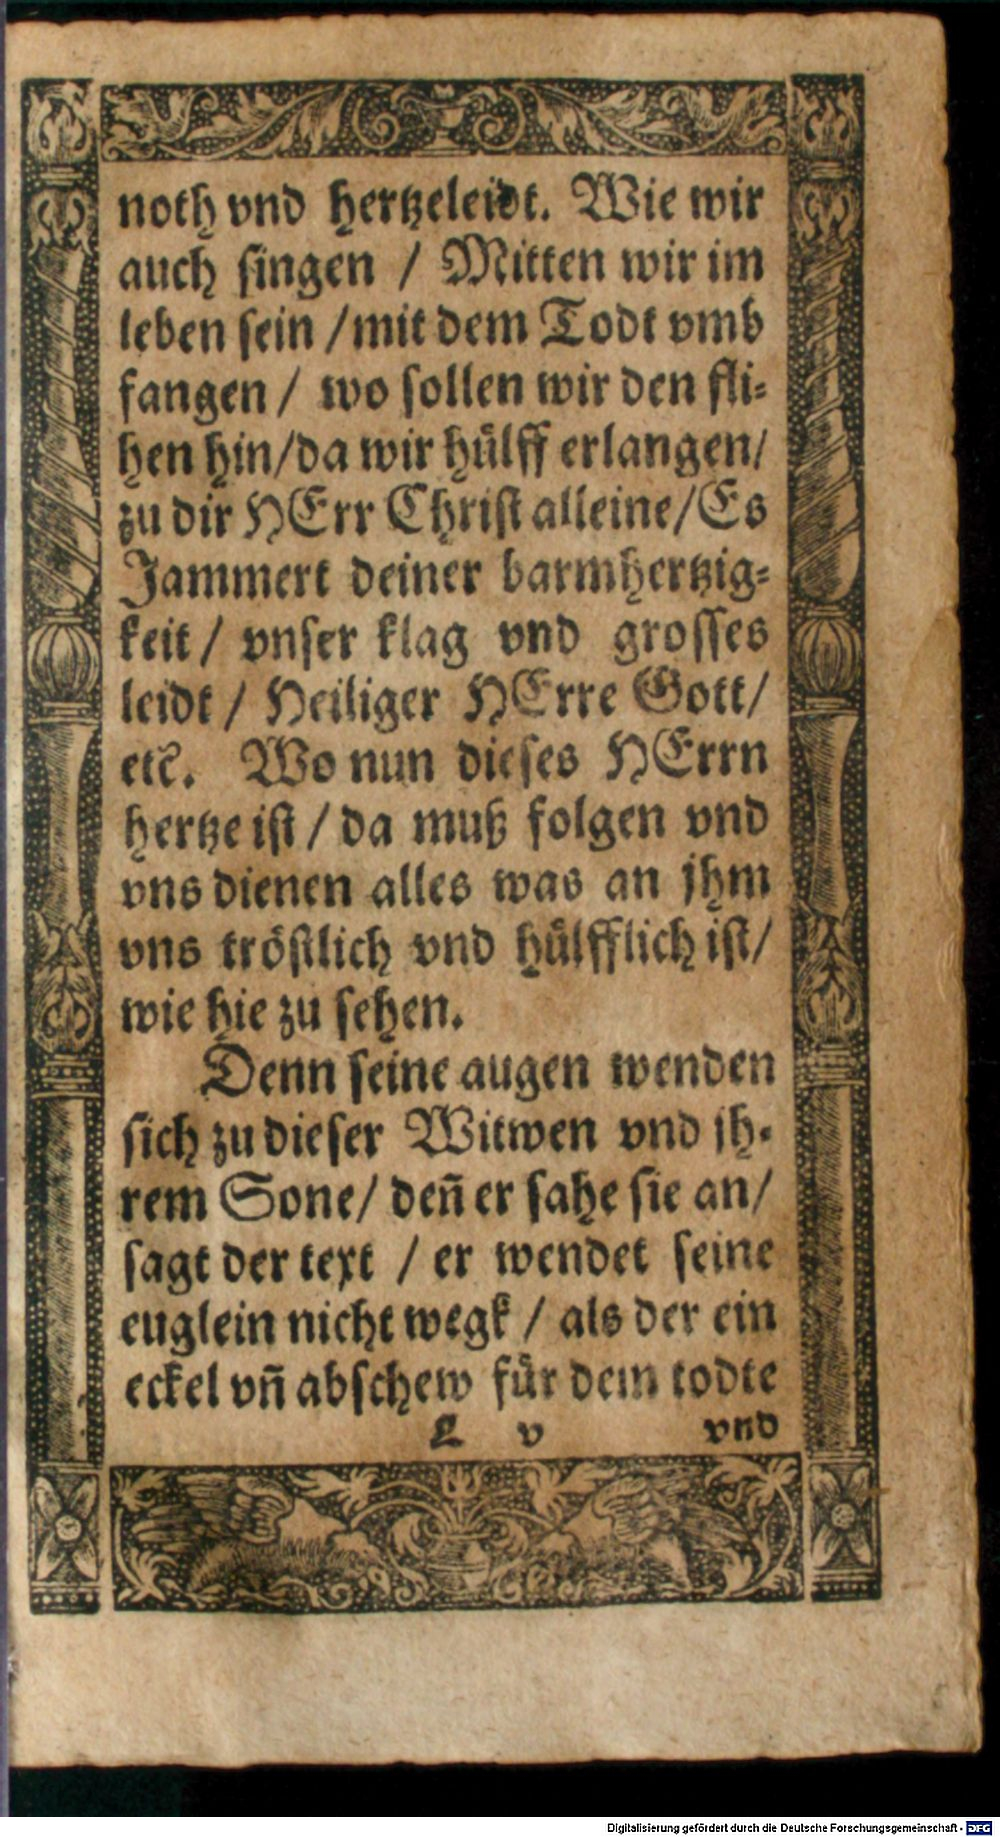 noth vnd hertzeleidt. Wie wir
auch singen / Mitten wir im
leben sein / mit dem Todt vmb
fangen / wo sollen wir den fli⸗
hen hin / da wir hülff erlangen /
zu dir HErr Christ alleine / Es
Jammert deiner barmhertzig⸗
keit / vnser klag vnd grosses
leidt / Heiliger HErre Gott /
etc. Wo nun dieses HErrn
hertze ist / da muß folgen vnd
vns dienen alles was an jhm
vns tröstlich vnd hülfflich ist /
wie hie zu sehen.
Denn seine augen wenden
sich zu dieser Witwen vnd jh⸗
rem Sone / deñ er sahe sie an /
sagt der text / er wendet seine
euglein nicht wegk / als der ein
eckel vñ abschew für dem todte
L v vnd
Digitalisierung gefördert durch die Deutsche Forschungsgemeinschaft - DFG